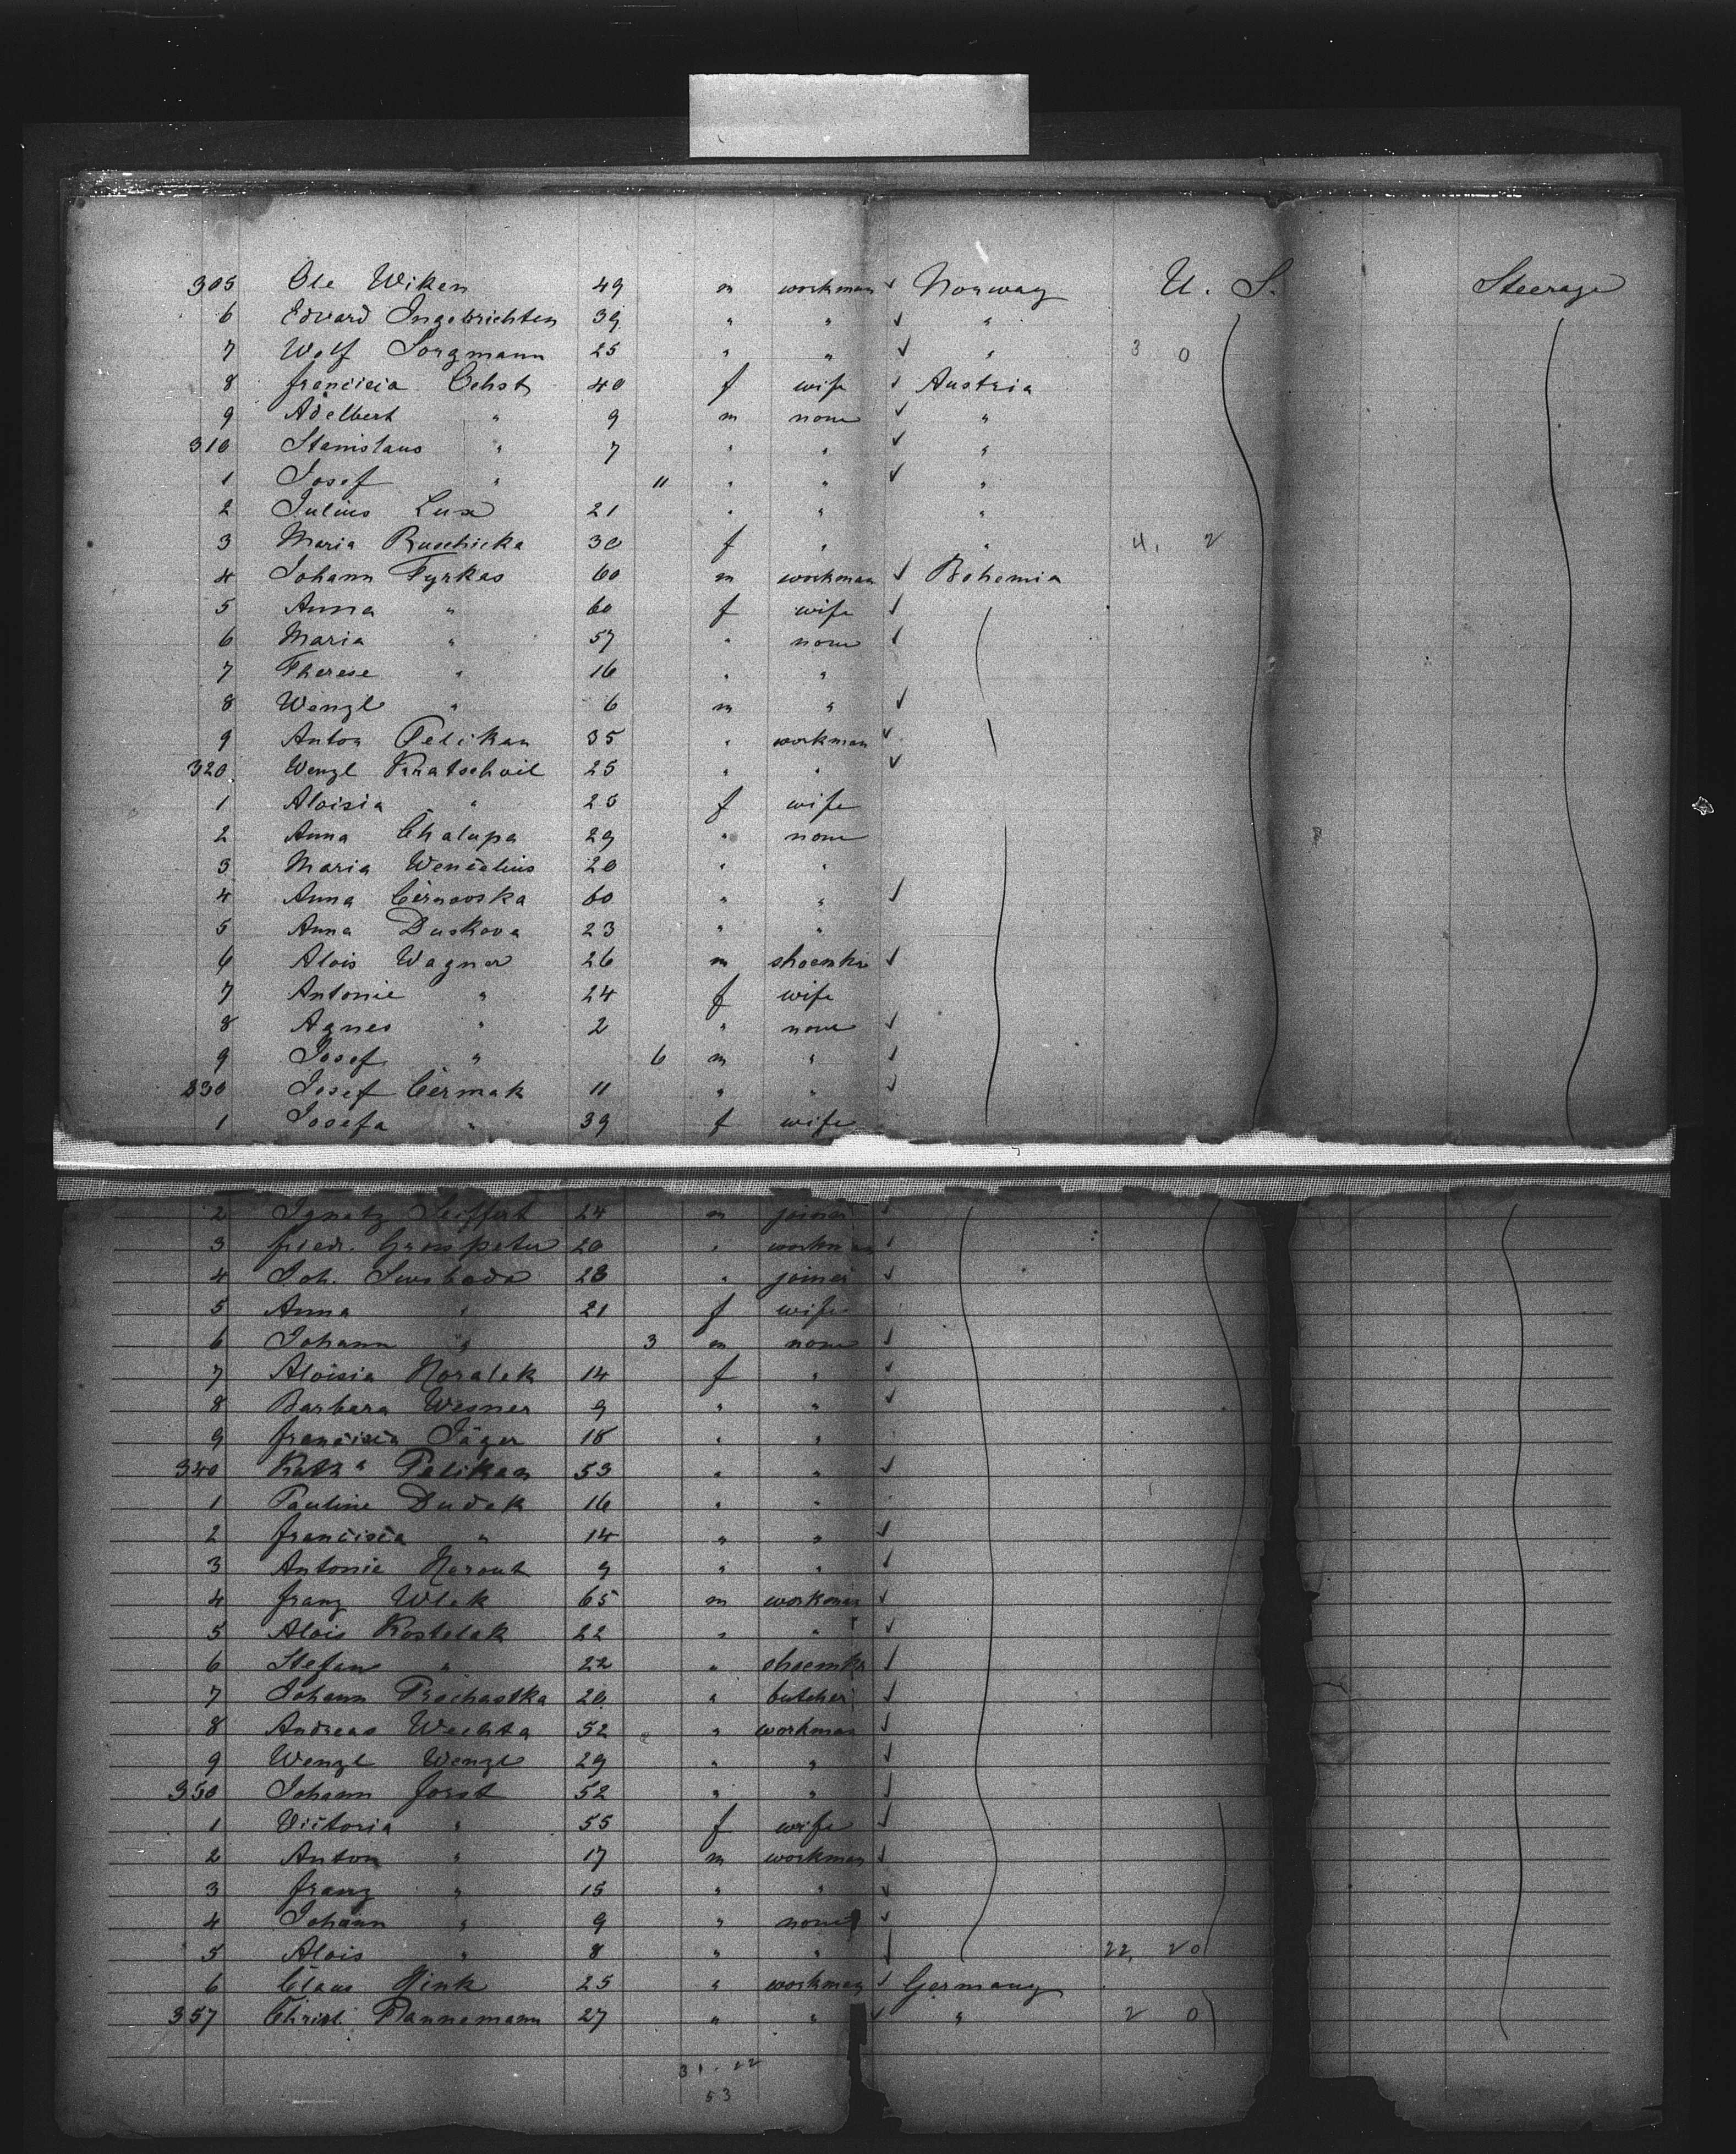 305 Ole Wiken 49 m workman ✓ Norway U. S. Steerage
6 Edvard Ingebrichten 39 " " ✓ "
7 Wolf Sorgmann 25 " " ✓ " 3 0
8 francisca Ochst 40 f wife ✓ Austria
9 Adelbert " 9 m none ✓ "
310 Stanislaus " 7 " " ✓ "
1 Josef " 11 " " ✓ "
2 Julius Lux 21 " " "
3 Maria Ruschicka 30 f " " 4. 2
4 Johann Tyrkas 60 m workman ✓ Bohemia
5 Anna " 60 f wife ✓
6 Maria " 57 " none ✓
7 Therese " 16 " "
8 Wenzl " 6 m " ✓
9 Anton Pelikan 35 " workman ✓
320 Wenzl Kratschvil 25 " " ✓
1 Aloisia " 25 f wife
2 Anna Chalupa 29 " none
3 Maria 20 " "
4 Anna 60 " " ✓
5 Anna Duskova 23 " "
6 Alois Wagner 26 m shoemkr ✓
7 Antonie " 24 f wife
8 Agnes " 2 " none ✓
9 Josef " 6 m " ✓
330 Josef Cermak 11 " " ✓
1 Josefa " 39 f wife
2 Ignatz Seiffert 24 m joiner ✓
3 friedr. Grosspeter 20 " workman ✓
4 Joh. Swoboda 28 " joiner ✓
5 Anna " 21 f wife
6 Johann " 3 m none ✓
7 Aloisia Horalek 14 f " ✓
8 Barbara Wesner 9 " " ✓
9 francisca Jäger 18 " "
340 Katha Pelikan 53 " " ✓
1 Pauline Dudek 16 " "
2 francisca " 14 " " ✓
3 Antonie 9 " " ✓
4 franz Wlek 65 m workman ✓
5 Alois Kostelak 22 " " ✓
6 Stefan " 22 " shoemkr ✓
7 Johann Prochastka 20 " butcher ✓
8 Andreas Wechta 52 " workman ✓
9 Wenzl Wenzl 29 " " ✓
350 Johann forst 52 " " ✓
1 Victoria " 55 f wife ✓
2 Anton " 17 m workman ✓
3 franz " 15 " " ✓
4 Johann " 9 " none ✓
5 Alois " 8 " " ✓ 22, 20
6 Claus 25 " workman ✓ Germany
357 Christ. Dannemann 27 " " ✓ " 2 0
31 . 22
53